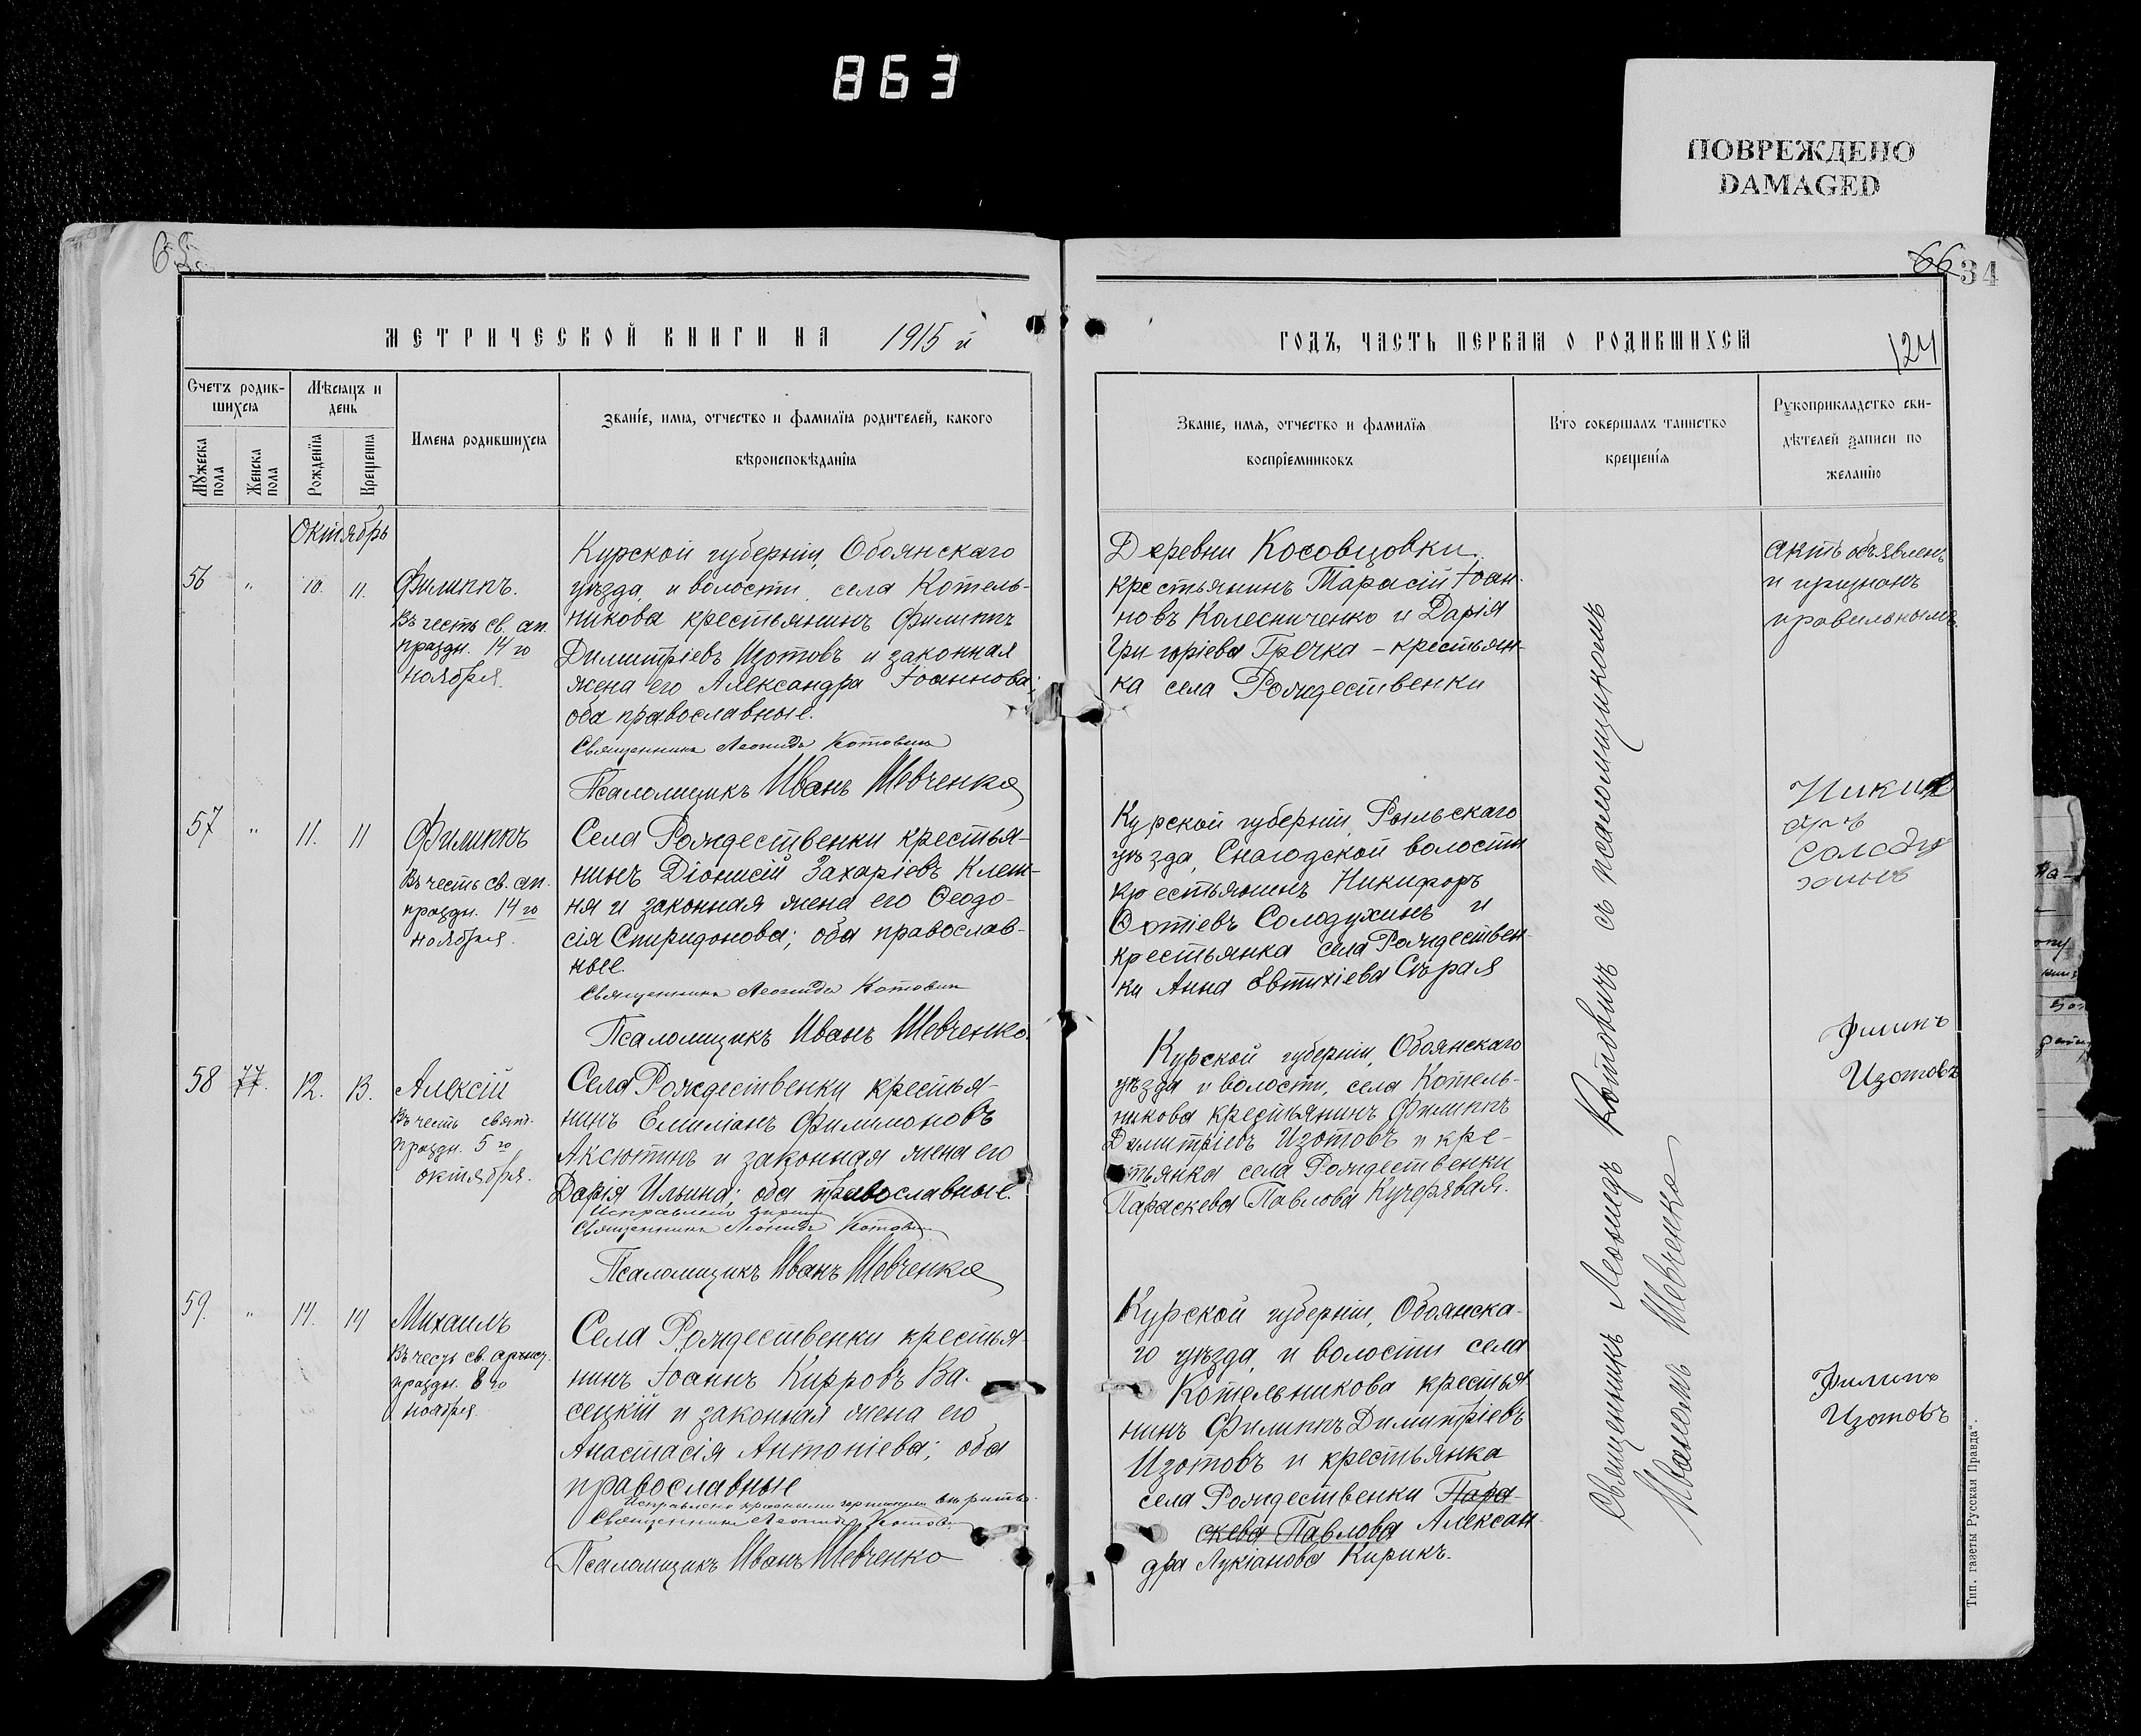 863
ПОВРЕЖДЕНО
DAMAGED
65.
66
34
124
МЕТРИЧЕСКОЙ КНИГИ НА 1915 й
ГОДЪ, ЧАСТЬ ПЕРВАЯ О РОДИВШИХСЯ
Счетъ родив-
шихся
Мѣсяцъ и
день
Мужеска
пола
Женска
пола
Рожденїя
Крещенїя
Имена родившихся
Званїе, имя, отчество и фамилїя родителей, какого
вѣроисповѣданїя
Званїе, имя, отчество и фамилїя
воспрїемниковъ
Кто совершалъ таинство
крещенїя
Рукоприкладство сви-
дѣтелей записи по
желанїю
Октябрь
56 " 10. 11.
Филиппъ.
Въ честь св. ап.
праздн. 14 го
ноября.
Курской губерніи, Обоянскаго
уѣзда, и волости, села Котель-
никова крестьянинъ Филиппъ
Димитріевъ Изотовъ и законная
жена его Александра Іоаннова;
оба православные.
Священникъ Леонидъ Котовичъ
Псаломщикъ Иванъ Шевченко
Деревни Косовцовки
крестьянинъ Тарасій Іоан-
новъ Колесниченко и Дарія
Григоріева Гречка – крестьян-
ка села Рождественки
Актъ объявленъ
и признанъ
правильнымъ.
57 " 11. 11
Филиппъ
Въ честь св. ап.
праздн. 14 го
ноября.
Села Рождественки крестья-
нинъ Діонисій Захаріевъ Клеш-
ня и законная жена его Ѳеодо-
сія Спиридонова; оба православ-
ные.
Священникъ Леонидъ Котовичъ
Псаломщикъ Иванъ Шевченко.
Курской губерніи, Рыльскаго
уѣзда, Снагодской волости
крестьянинъ Никифоръ
Фотіевъ Солодухинъ и
крестьянка села Рождествен-
ки Анна Евтихіева Сѣрая
58 77. 12. 13.
Алексій
Въ честь свят.
праздн. 5 го
октября.
Села Рождественки крестья-
нинъ Емиліанъ Филимоновъ
Аксютинъ и законная жена его
Дарія Ильина; оба православные.
Священникъ Леонидъ Котовичъ
Псаломщикъ Иванъ Шевченко
Курской губерніи, Обоянскаго
уѣзда и волости, села Котель-
никова крестьянинъ Филиппъ
Димитріевъ Изотовъ и кре-
стьянка села Рождественки
Параскева Павлова Кучерявая.
Филипъ
Изотовъ
59. " 14. 14
Михаилъ
Въ честь св. архист.
праздн. 8 го
ноября.
Села Рождественки крестья-
нинъ Іоаннъ Кирровъ Ва-
сецкій и законная жена его
Анастасія Антоніева; оба
православные
Исправлено красными чернилами вѣрить.
Священникъ Леонидъ Котовичъ
Псаломщикъ Иванъ Шевченко
Курской губерніи, Обоянска-
го уѣзда, и волости села
Котельникова крестья
нинъ Филиппъ Димитріевъ
Изотовъ и крестьянка
села Рождественки Пара-
скева Павлова Алексан-
дра Лукіанова Кирикъ.
Филипъ
Изотовъ
Священникъ Леонидъ Котовичъ съ псаломщикомъ
Иваномъ Шевченко
Тип. газеты Русская Правда".